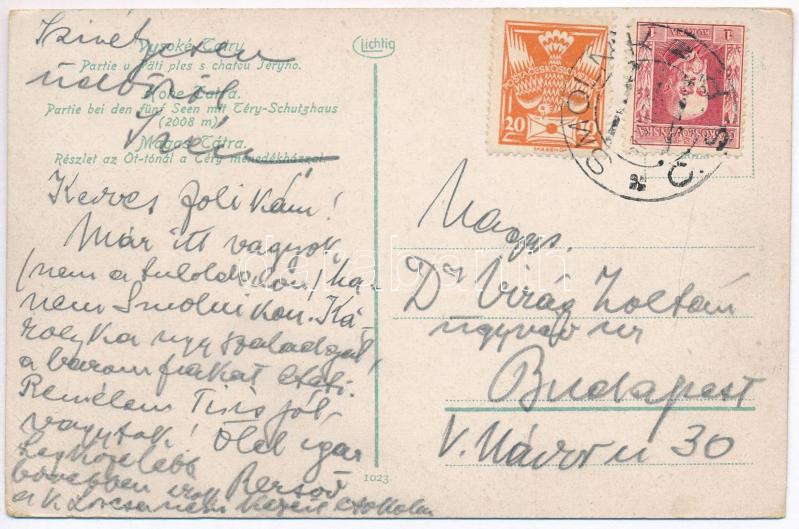 Szívélyesen
üdvözöl
Vysoké Tatry
Partie u Päti ples s chatou Téryho.
Hohe Tatra.
Partie bei den fünf Seen mit Téry-Schutzhaus
(2008 m)
Magas Tátra.
Részlet az Öt-tónál a Téry menedékházzal.
Lichtig
Kedves Jolikám!
Már itt vagyok
(nem a túloldalon) ha-
nem Smolnikon. Ká-
rolyka úgy szaladgál,
a baromfiakat
Remélem Ti is jól
vagytok! Ölel igaz
Legközelebb
bővebben írok
csókolom
1023
POSTA ČESKOSLOVENSKÁ
20
ČESKOSLOVENSKÁ
1
KORUNA
SMOLNÍK
Č.S.
Nagys.
Dr Virág Zoltán
ügyvéd úr
Budapest
V. Nádor u 30
darabanth